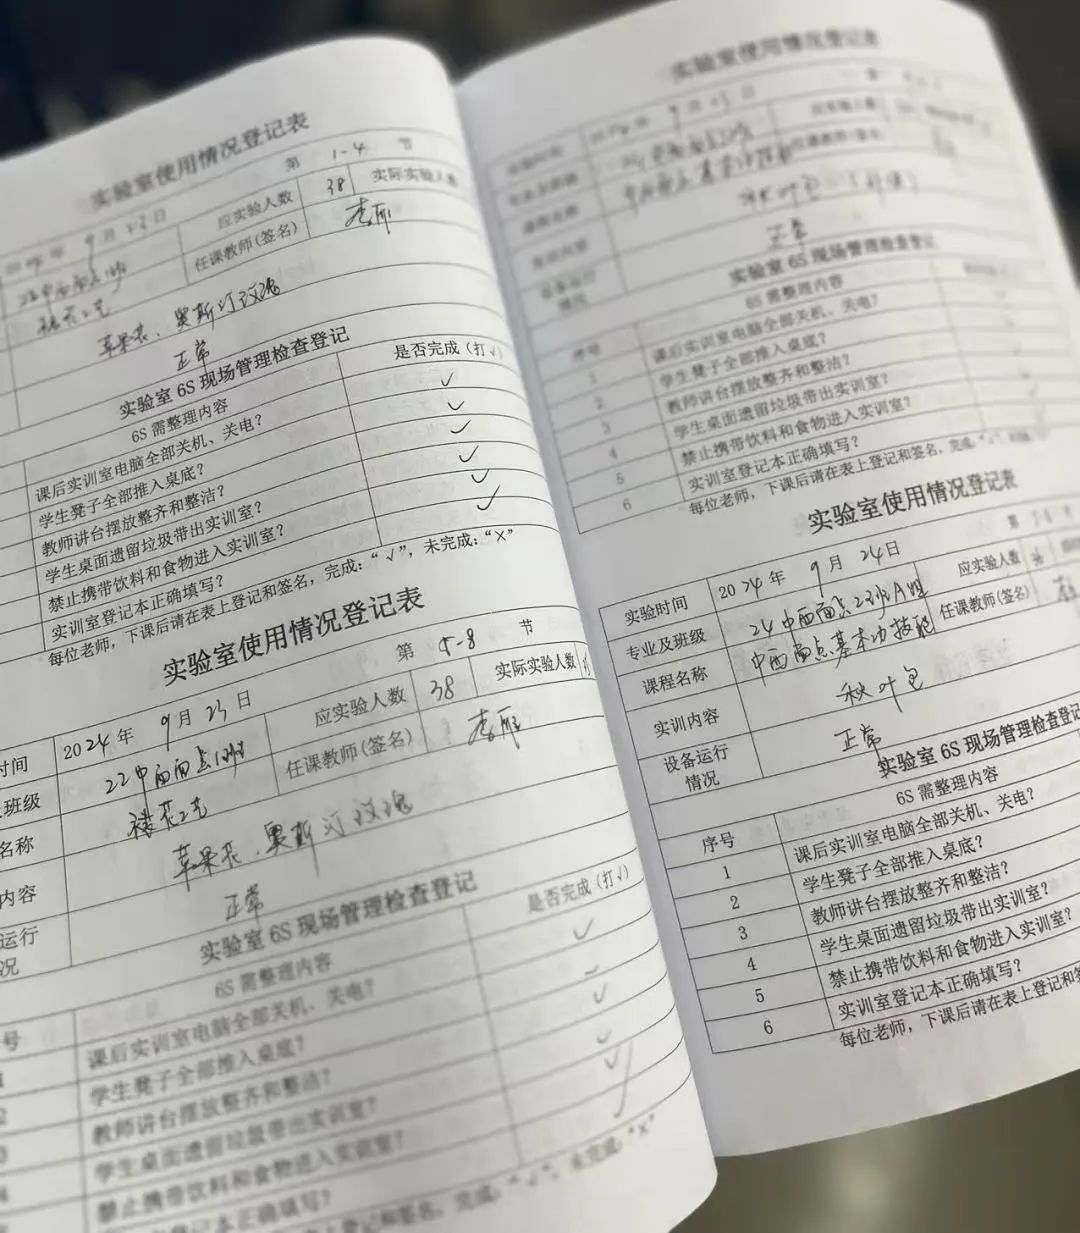 实验室使用情况登记表
第 1-4 节
年 9月23日 应实验人数 38 实际实验人数
22中西面点1班 任课教师(签名) 李雁
裱花工艺
苹果花、奥斯汀玫瑰
正常
实验室 6S 现场管理检查登记
6S 需整理内容 是否完成（打√）
课后实训室电脑全部关机、关电？ ✓
学生凳子全部推入桌底？ ✓
教师讲台摆放整齐和整洁？ ✓
学生桌面遗留垃圾带出实训室？ ✓
禁止携带饮料和食物进入实训室？ ✓
实训室登记本正确填写？ ✓
每位老师，下课后请在表上登记和签名，完成：“√”，未完成：“×”
实验室使用情况登记表
第 5-8 节
时间 2024年 9月23日 应实验人数 38 实际实验人数
班级 22中西面点1班 任课教师(签名) 李雁
名称 裱花工艺
内容 苹果花、奥斯汀玫瑰
运行
况 正常
实验室 6S 现场管理检查登记
号 6S 需整理内容 是否完成（打√）
课后实训室电脑全部关机、关电？ ✓
学生凳子全部推入桌底？ ✓
教师讲台摆放整齐和整洁？ ✓
学生桌面遗留垃圾带出实训室？ ✓
禁止携带饮料和食物进入实训室？ ✓
登记本正确填写？ ✓
表上登记和签名，完成：“√”，未完成：“×”
实验室使用情况登记表
实验时间 年 9月 日 应实验人数
专业及班级 任课教师(签名)
课程名称
实训内容 秋叶包
设备运行
情况 正常
实验室 6S 现场管理检查登记
序号 6S 需整理内容
1 课后实训室电脑全部关机、关电？
2 学生凳子全部推入桌底？
3 教师讲台摆放整齐和整洁？
4 学生桌面遗留垃圾带出实训室？
5 禁止携带饮料和食物进入实训室？
6 实训室登记本正确填写？
每位老师，下课后请在表上登记和签名，完成：“√”
实验室使用情况登记表
第
实验时间 2024年 9月24日 应实验人数
专业及班级 24中西面点2班A组 任课教师(签名) 李
课程名称 中西面点基本功技能
实训内容 秋叶包
设备运行
情况 正常
实验室 6S 现场管理检查登记
序号 6S 需整理内容
1 课后实训室电脑全部关机、关电？
2 学生凳子全部推入桌底？
3 教师讲台摆放整齐和整洁？
4 学生桌面遗留垃圾带出实训室？
5 禁止携带饮料和食物进入实训室？
6 实训室登记本正确填写？
每位老师，下课后请在表上登记和签